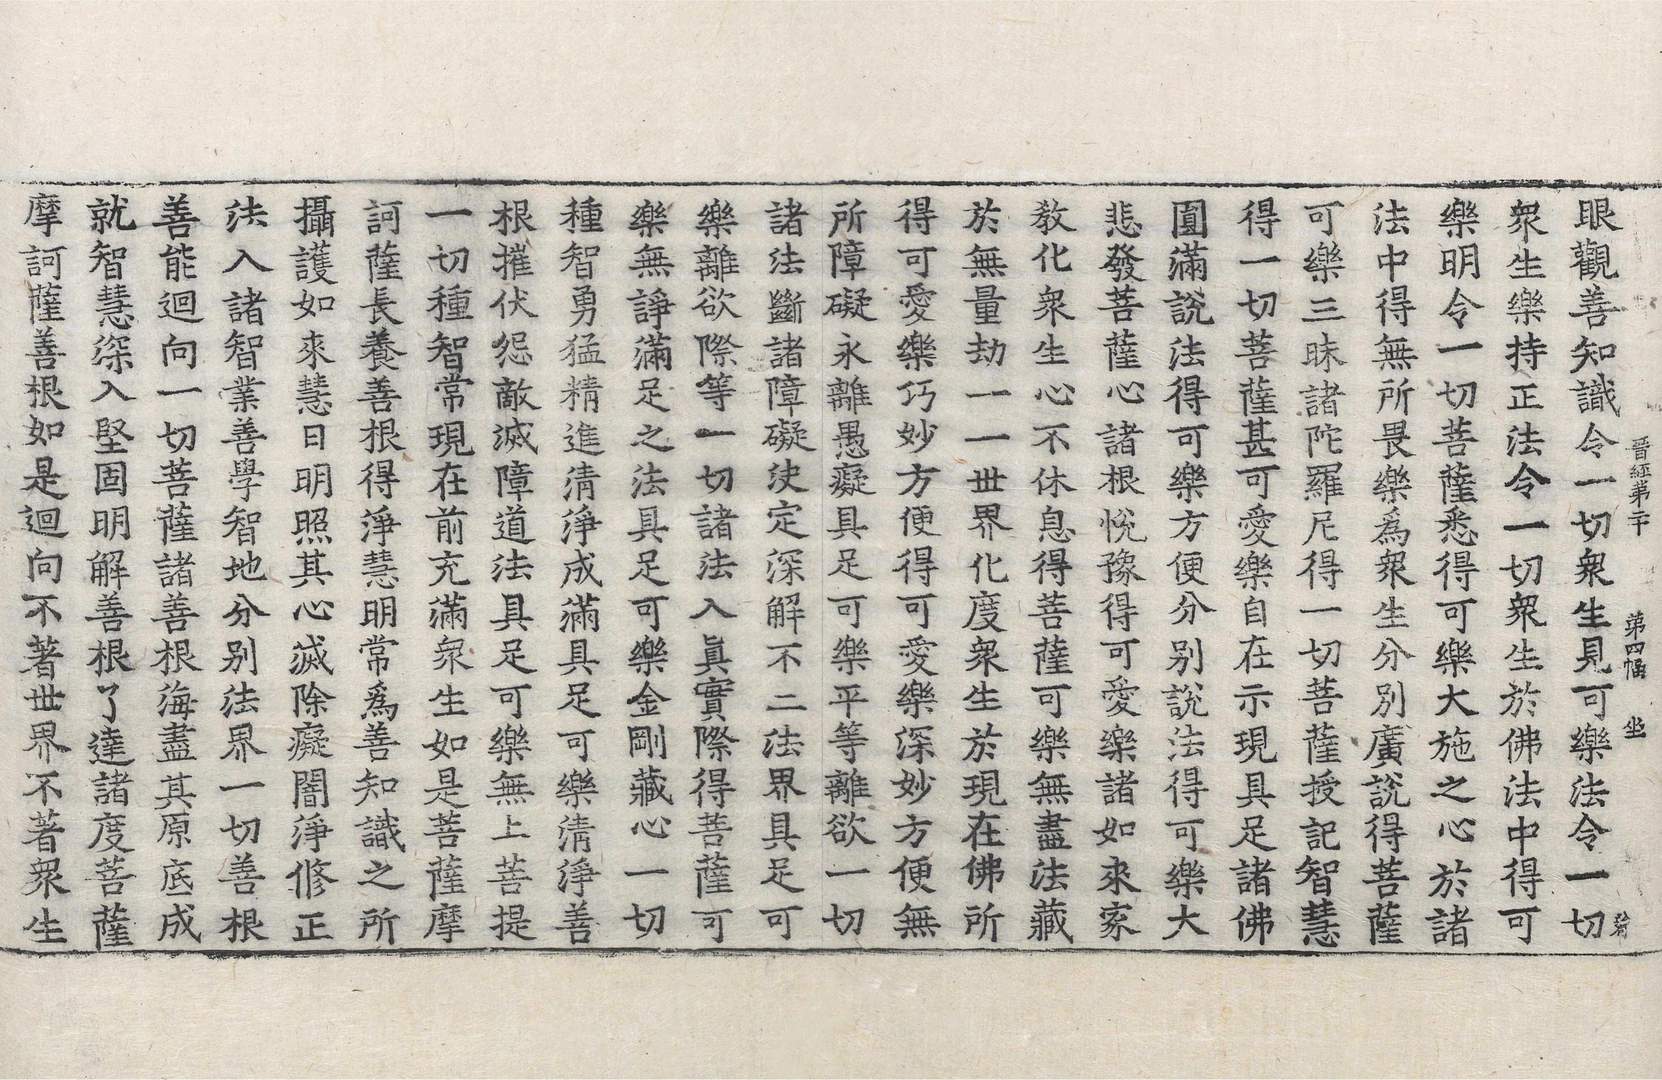 晋經第二十 第四幅 坐
眼觀善知識令一切衆生見可樂法令一切
衆生樂持正法令一切衆生於佛法中得可
樂明令一切菩薩悉得可樂大施之心於諸
法中得無所畏樂爲衆生分別廣說得菩薩
可樂三昧諸陀羅尼得一切菩薩授記智慧
得一切菩薩甚可愛樂自在示現具足諸佛
圓滿說法得可樂方便分別說法得可樂大
悲發菩薩心諸根悅豫得可愛樂諸如來家
教化衆生心不休息得菩薩可樂無盡法藏
於無量劫一一世界化度衆生於現在佛所
得可愛樂巧妙方便得可愛樂深妙方便無
所障礙永離愚癡具足可樂平等離欲一切
諸法斷諸障礙決定深解不二法界具足可
樂離欲際等一切諸法入眞實際得菩薩可
樂無諍滿足之法具足可樂金剛藏心一切
種智勇猛精進清淨成滿具足可樂清淨善
根摧伏怨敵滅障道法具足可樂無上菩提
一切種智常現在前充滿衆生如是菩薩摩
訶薩長養善根得淨慧明常爲善知識之所
攝護如來慧日明照其心滅除癡闇淨修正
法入諸智業善學智地分別法界一切善根
善能迴向一切菩薩諸善根海盡其原底成
就智慧深入堅固明解善根了達諸度菩薩
摩訶薩善根如是迴向不著世界不著衆生